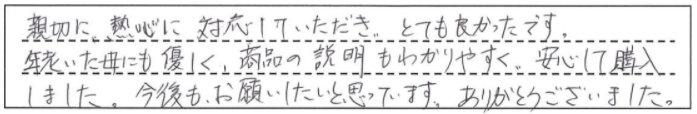 親切に、熱心に対応していただき、とても良かったです。
年老いた母にも優しく、商品の説明もわかりやすく、安心して購入
しました。今後も、お願いしたいと思っています。ありがとうございました。